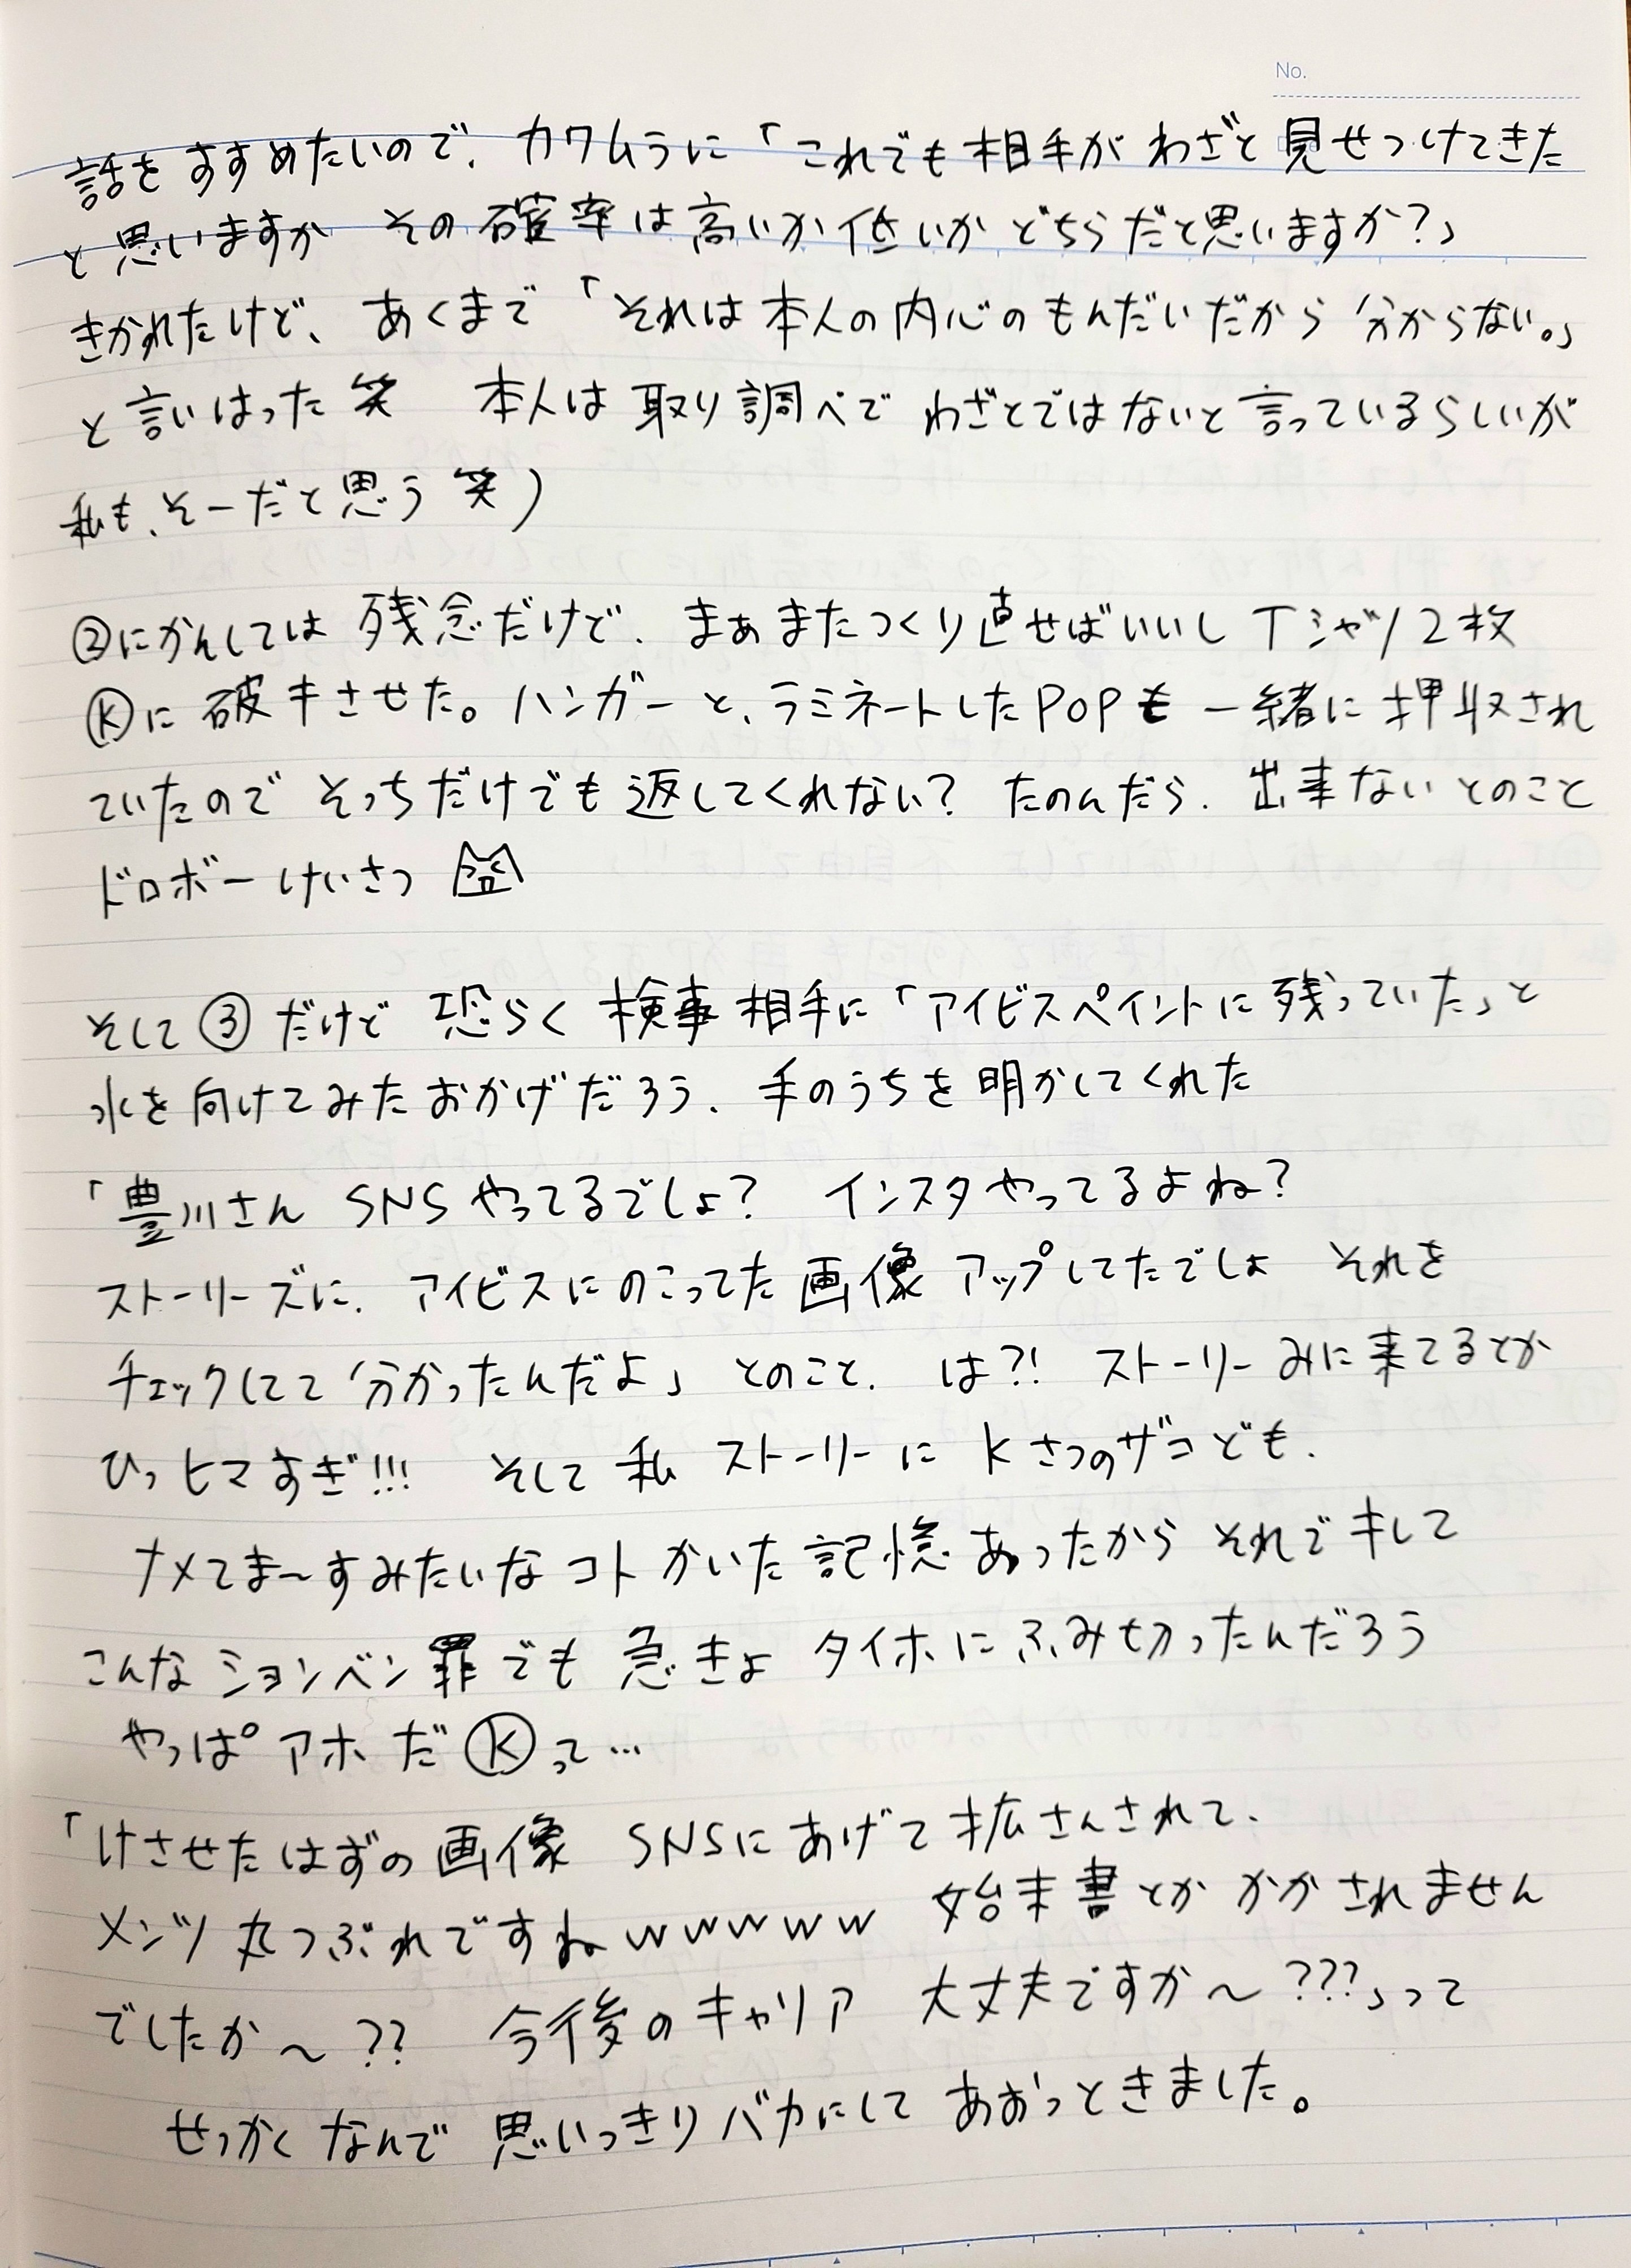 No.
話をすすめたいので、カワムラに「これでも相手がわざと見せつけてきた
と思いますか その確率は高いか低いかどちらだと思いますか?」
きかれたけど、あくまで「それは本人の内心のもんだいだから分からない。」
と言いはった笑 本人は取り調べでわざとではないと言っているらしいが
私も、そーだと思う笑)
②にかんしては残念だけど、まぁまたつくり直せばいいしTシャツ2枚
Ⓚに破キさせた。ハンガーと、ラミネートしたPOPも一緒に押収され
ていたのでそっちだけでも返してくれない?たのんだら、出来ないとのこと
ドロボーけいさつ
そして③だけど恐らく検事相手に「アイビスペイントに残っていた」と
水を向けてみたおかげだろう、手のうちを明かしてくれた
「豊川さん SNSやってるでしょ? インスタやってるよね?
ストーリーズに、アイビスにのこってた画像アップしてたでしょ それを
チェックしてて分かったんだよ」とのこと、は?! ストーリーみに来てるとか
ひっヒマすぎ!!! そして私ストーリーにKさつのザコども、
ナメてま〜すみたいなコトかいた記憶あったからそれでキレて
こんなションベン罪でも急きょタイホにふみ切ったんだろう
やっぱアホだⓀって…
「けさせたはずの画像 SNSにあげて拡さんされて、
メンツ丸つぶれですねwwwww 始末書とかかかされません
でしたか〜?? 今後のキャリア大丈夫ですか〜???」って
せっかくなんで思いっきりバカにしてあおっときました。